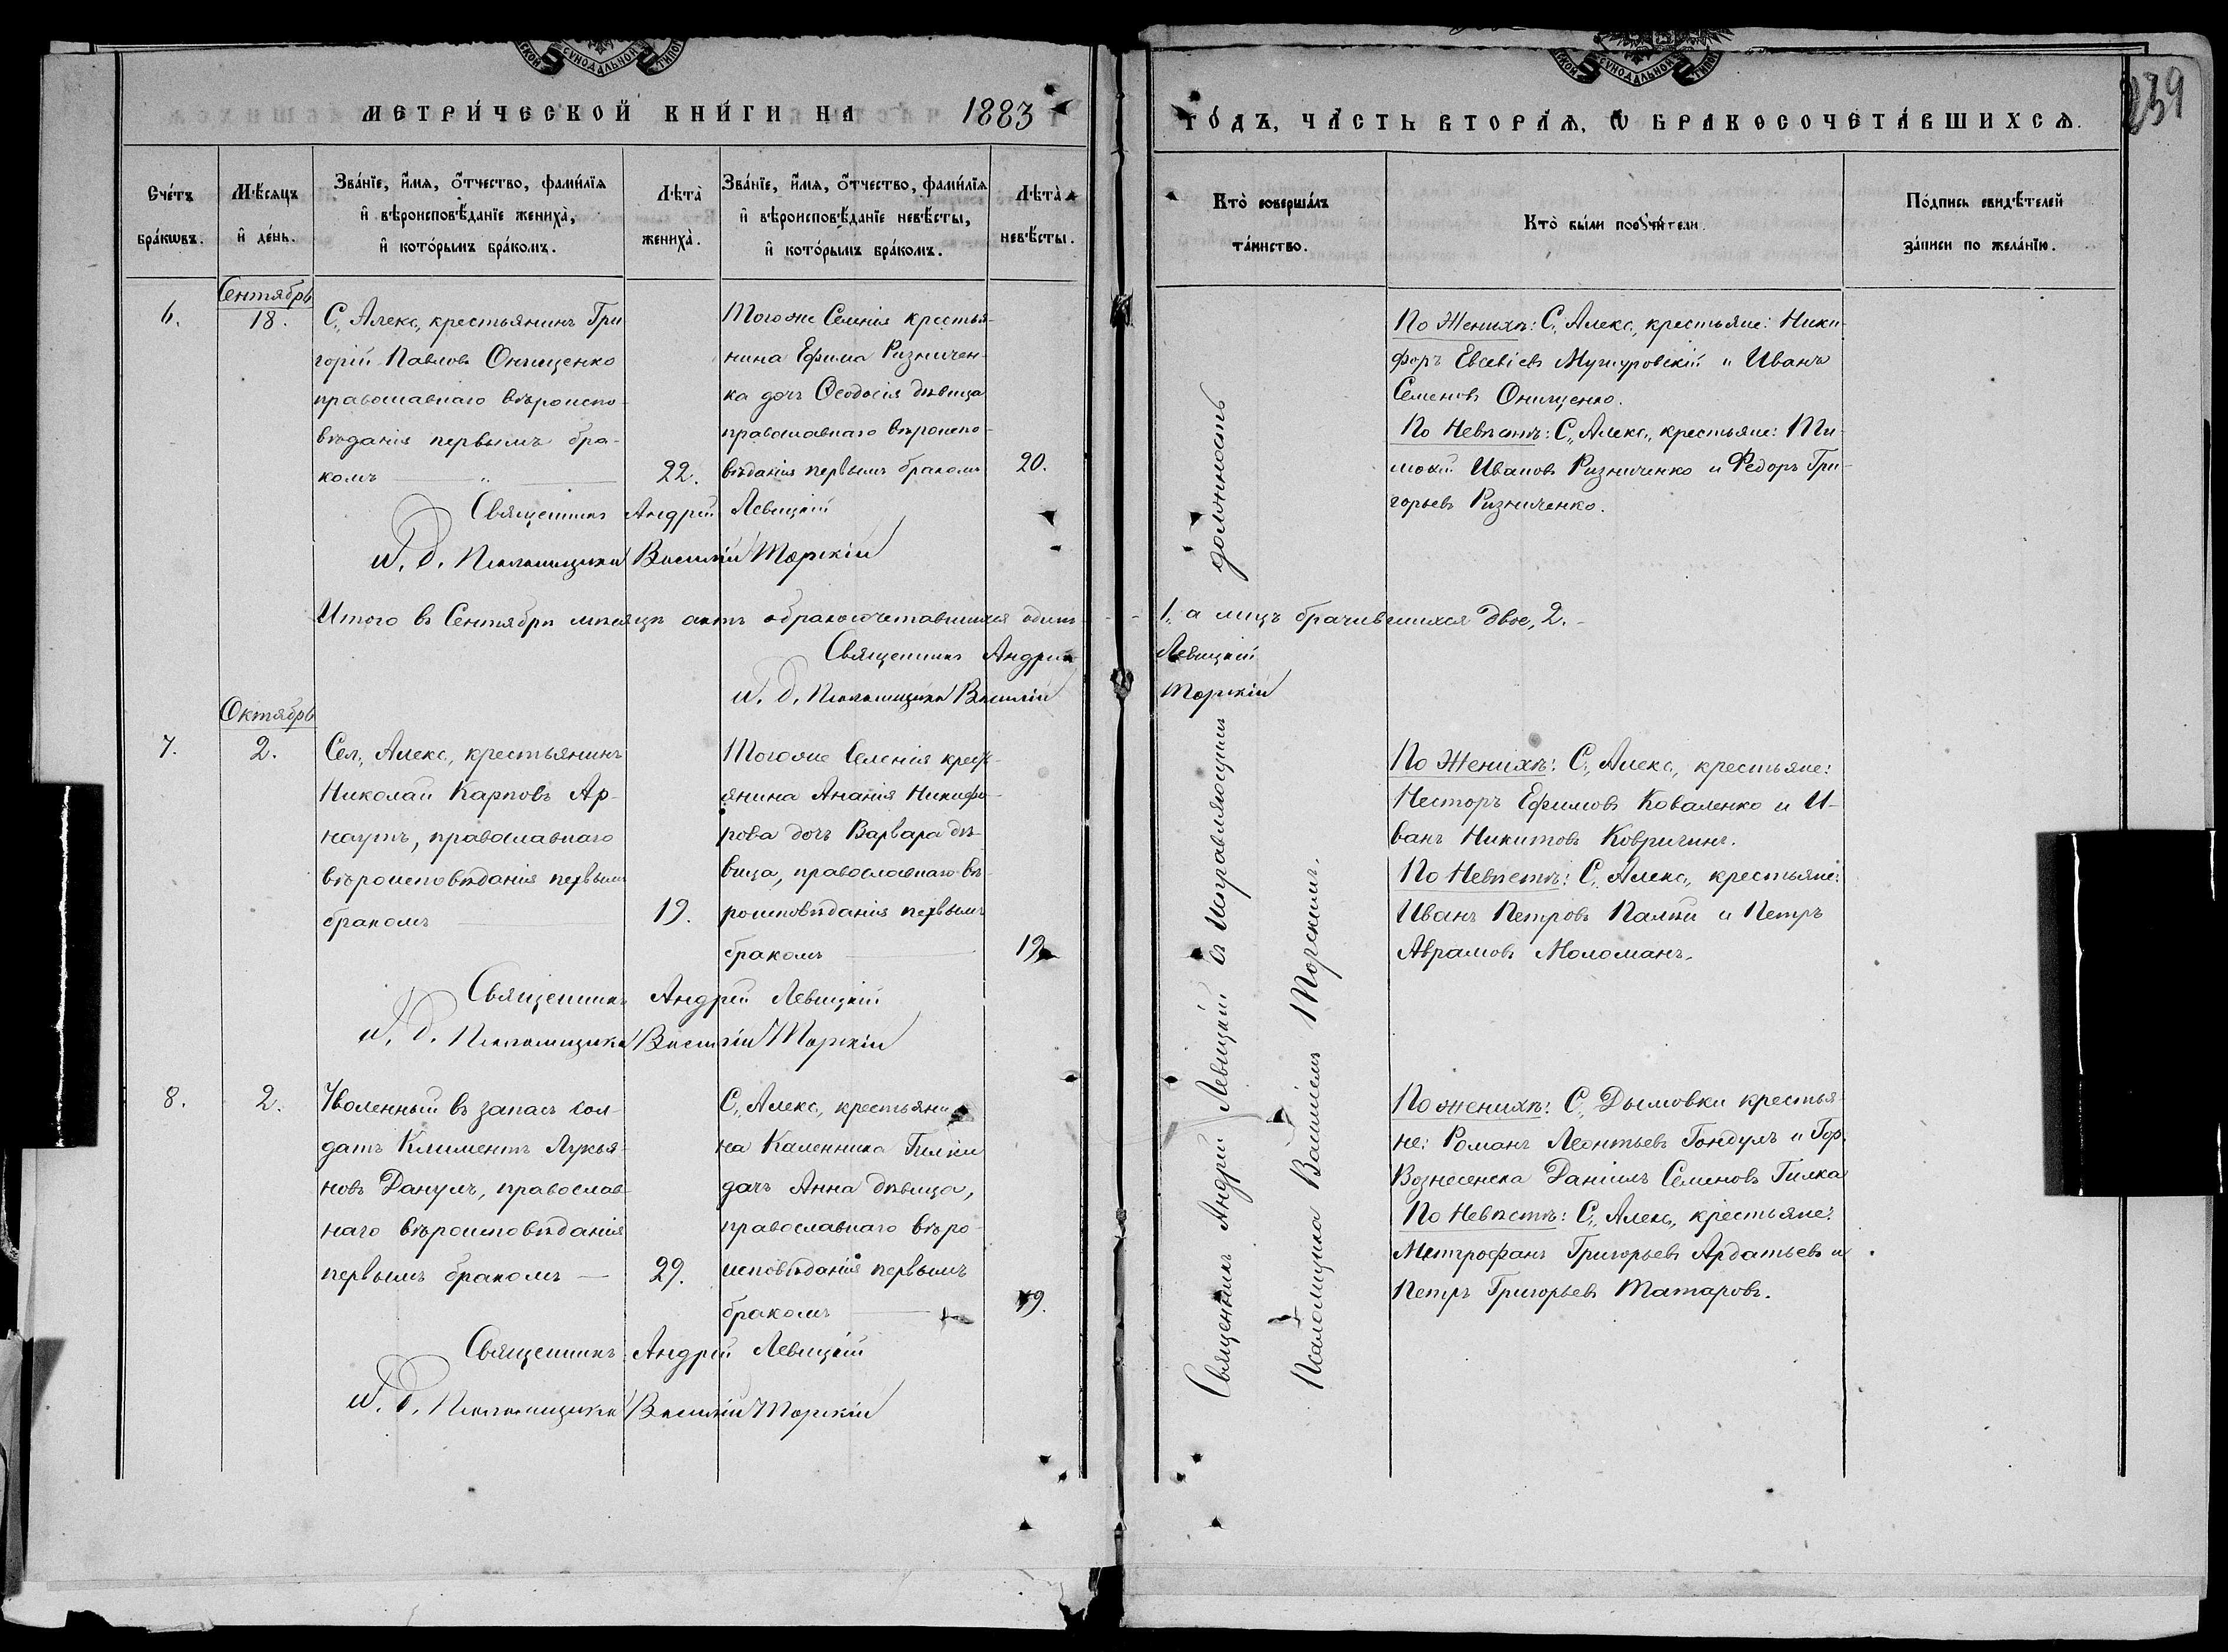 МЕТРИ́ЧЕСКОЙ КНИ́ГИ НА 1883
ГО́ДЪ, ЧА́СТЬ ВТОРА́Ѧ, Ѡ БРАКОСОЧЕТА́ВШИХСѦ.
239
Сче́тъ бра́кѡвъ.
Мѣ́сяцъ и де́нь.
Зва́нїе, и́мѧ, о́тчество, фами́лїѧ
и вѣроисповѣ́данїе жениха̀,
и кото́рымъ бра́комъ.
Лѣта̀ жениха̀.
Зва́нїе, и́мѧ, о́тчество, фами́лїѧ
и вѣроисповѣ́данїе невѣ́сты,
и кото́рымъ бра́комъ.
Лѣта̀ невѣ́сты.
Кто̀ соверша́лъ
та́инство.
Кто̀ бы́ли порꙋчи́тели.
По́дпись свидѣ́телей
за́писи по жела́нїю.
6.
Сентябрь
18.
С., Алекс., крестьянинъ Гри
горій Павловъ Онищенко
православнаго вѣроиспо-
вѣданія первымъ бра-
комъ
22.
Тогоже Селенія крестья-
нина Ефима Ризничен-
ка дочь Ѳеодосія дѣвица
православнаго вѣроиспо-
вѣданія первымъ бракомъ
20.
Священникъ Андрей Левицкій
И. д. Псаломщика Василій Торскій
По Женихѣ: С., Алекс., крестьяне: Ники-
форъ Евсевіевъ и Иванъ
Семеновъ Онищенко.
По Невѣстѣ: С., Алекс., крестьяне: Ти-
мофій Ивановъ Ризниченко и Ѳедоръ Гри-
горьевъ Ризниченко.
Итого въ Сентябрѣ мѣсяцѣ актъ о бракосочетавшихся одинъ - - 1, а лицъ брачившихся двое, 2. -
Священникъ Андрей Левицкій
И. д. Псаломщика Василій Торскій
7.
Октябрь
2.
Сел., Алекс., крестьянинъ
Николай Карповъ Ар-
наутъ, православнаго
вѣроисповѣданія первымъ
бракомъ
19.
Тогоже Селенія крест-
янина Ананія Никифо-
рова дочь Варвара дѣ-
вица, православнаго вѣ-
роисповѣданія первымъ
бракомъ
19.
Священникъ Андрей Левицкій
И. д. Псаломщика Василій Торскій
По Женихѣ: С., Алекс., крестьяне:
Несторъ Ефимовъ Коваленко и И-
ванъ Никитовъ Ковричинъ.
По Невѣстѣ: С., Алекс., крестьяне:
Иванъ Петровъ Палій и Петръ
Аврамовъ Моломанъ.
8.
2.
Уволенный въ запасъ сол-
датъ Климентъ Лукья-
новъ Данулъ, православ-
наго вѣроисповѣданія
первымъ бракомъ —
29.
С., Алекс., крестьяни-
на Каленника Гилки
дочь Анна дѣвица,
православнаго вѣро-
исповѣданія первымъ
бракомъ
19.
Священникъ Андрей Левицкій
И. д. Псаломщика Василій Торскій
По женихѣ: С., Дымовки крестья-
не: Романъ Леонтьевъ Гондулъ и Гор.
Вознесенска Даніилъ Семеновъ Гилка
По Невѣстѣ: С., Алекс., крестьяне:
Митрофанъ Григорьевъ Ардатьевъ и
Петръ Григорьевъ Татаровъ.
Священникъ Андрей Левицкій съ Исправляющимъ должность
Псаломщика Василіемъ Торскимъ.